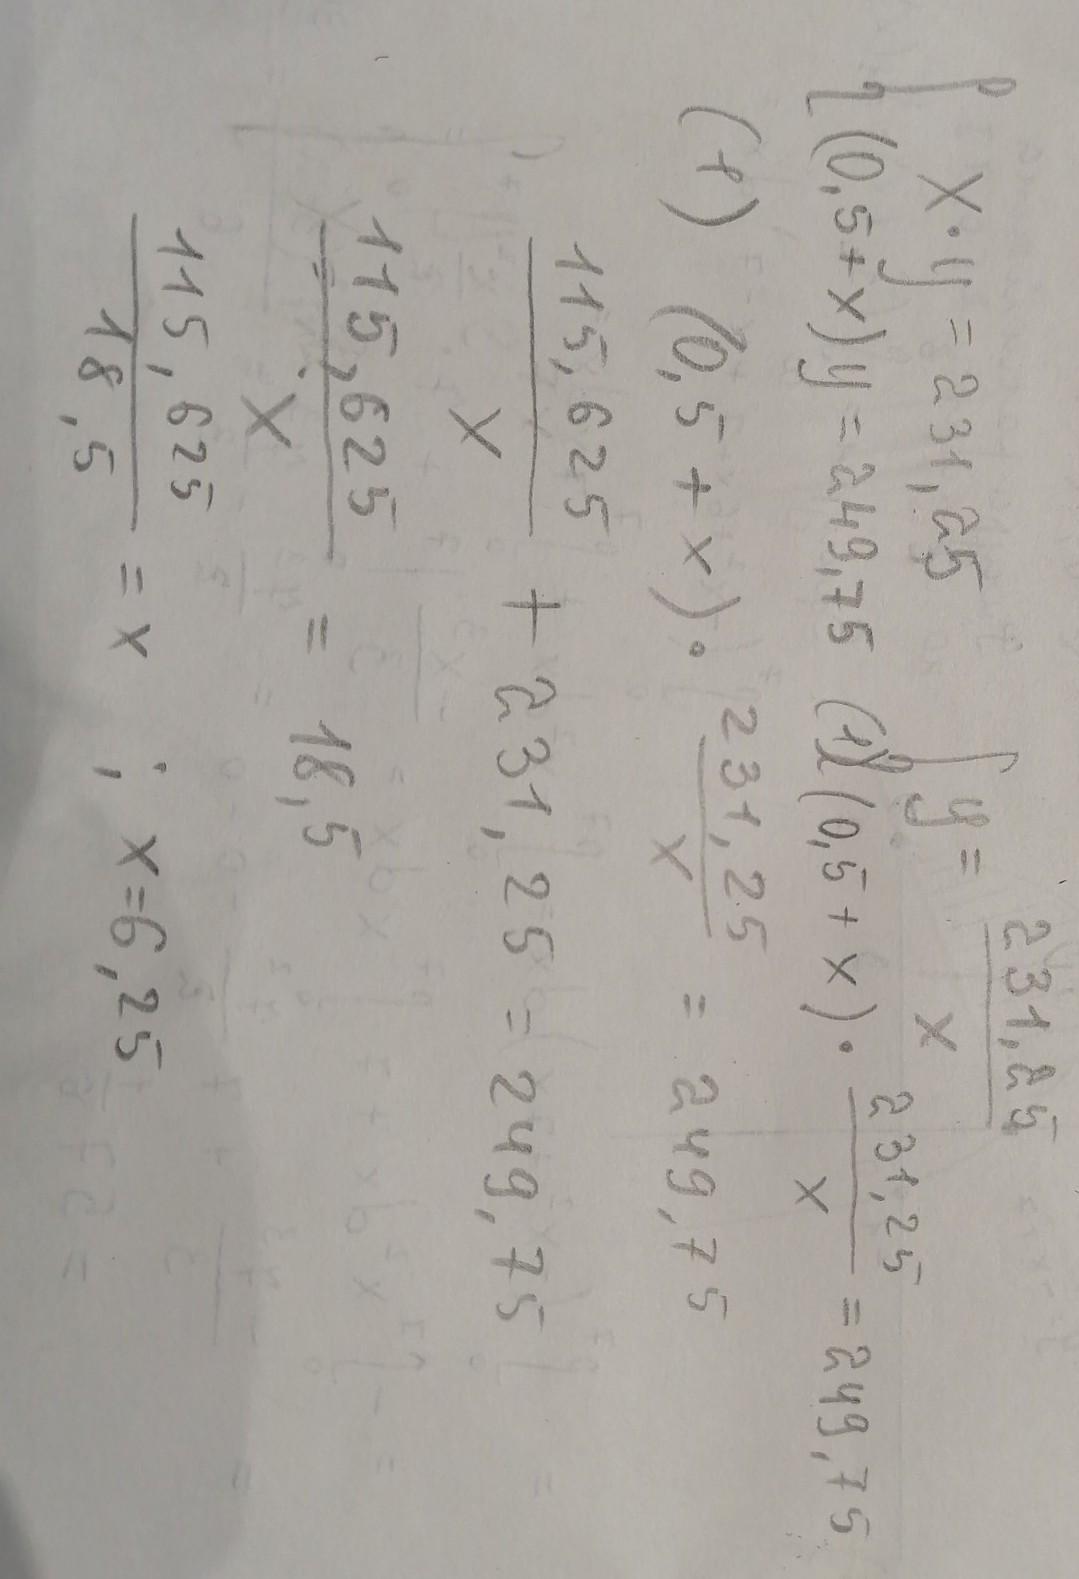 x·y = 231,25 { y = 231,25 / x
{ (0,5 + x)y = 249,75 (1) (0,5 + x) · 231,25 / x = 249,75
(1) (0,5 + x) · 231,25 / x = 249,75
115,625 / x + 231,25 = 249,75
115,625 / x = 18,5
115,625 / 18,5 = x ; x = 6,25